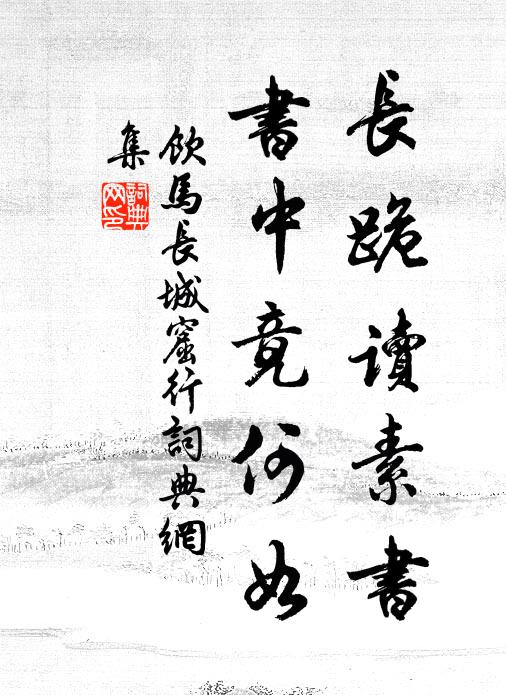 長跪讀素書
書中竟何如
飲馬長城窟行詞典網
集
詞典
网印